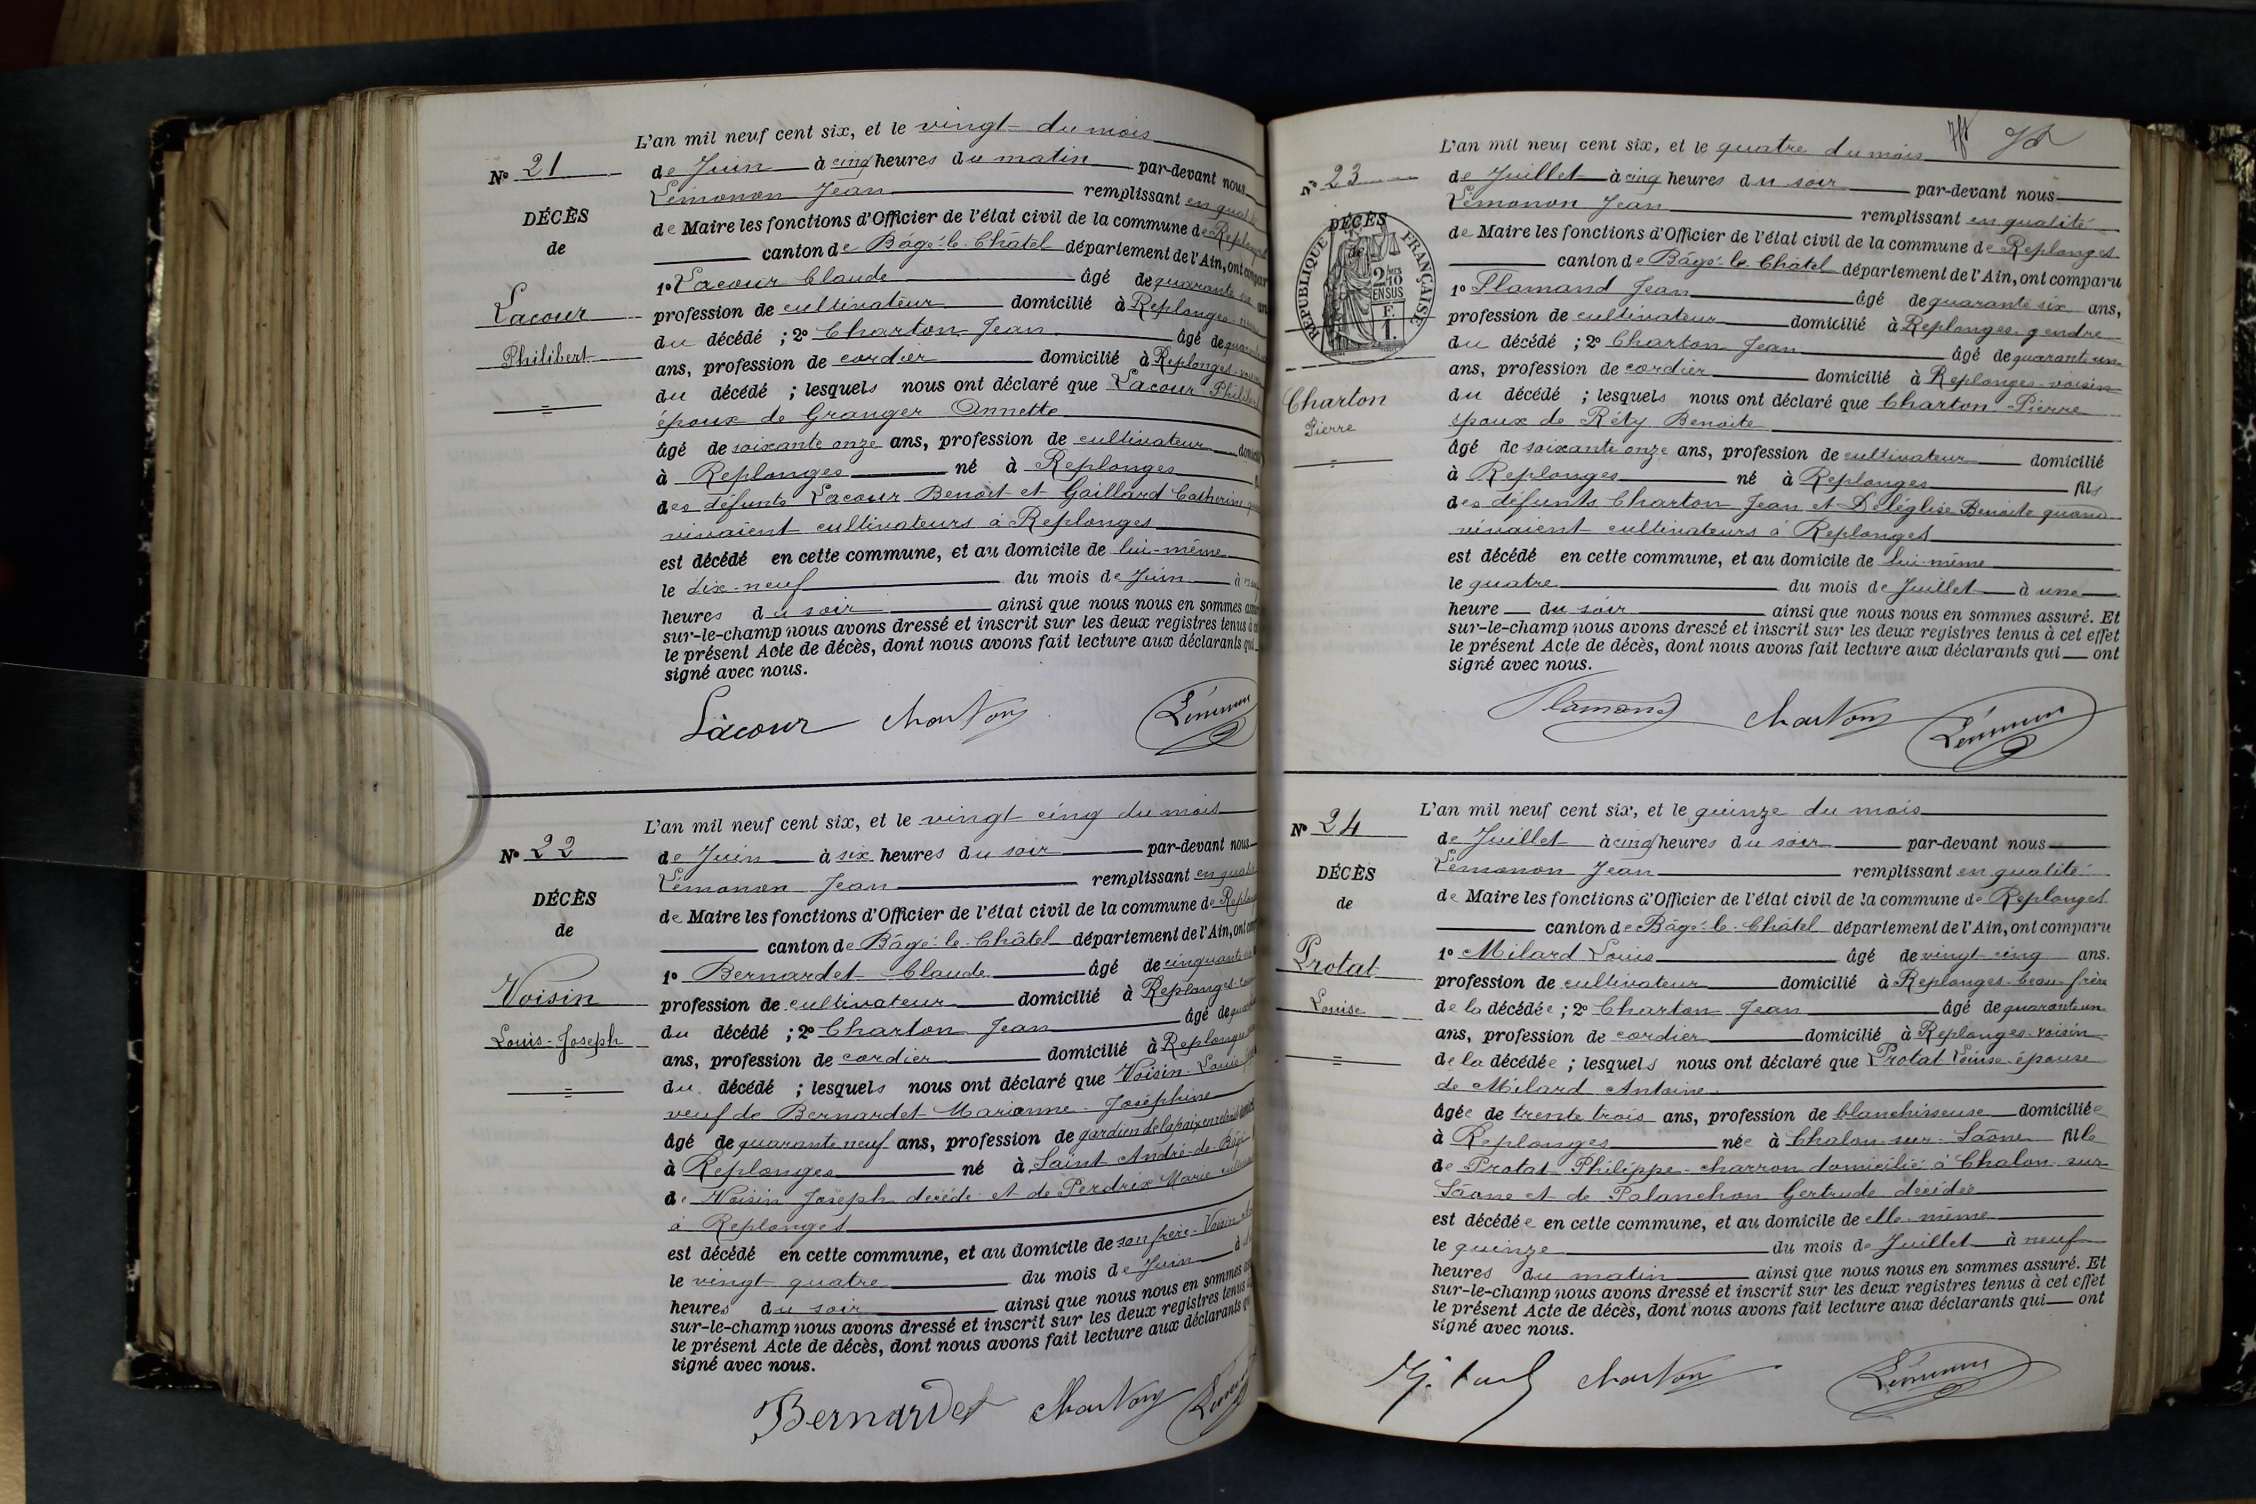 L'an mil neuf cent six, et le vingt du mois
N° 21
de Juin à cinq heures du matin par-devant nous
Lémonon Jean remplissant en
DÉCÈS
de Maire les fonctions d'Officier de l'état civil de la commune de
de
canton de Bâgé-le-Châtel département de l'Ain, ont
1° Lacour Claude âgé de quarante
Lacour
profession de cultivateur domicilié à Replonges
du décédé ; 2° Charton Jean âgé de
Philibert
ans, profession de cordier domicilié à Replonges
du décédé ; lesquels nous ont déclaré que Lacour
époux de Granger Annette
âgé de soixante onze ans, profession de cultivateur
à Replonges né à Replonges
des défunts Lacour Benoit et Gaillard Catherine
vivaient cultivateurs à Replonges
est décédé en cette commune, et au domicile de lui-même
le dix-neuf du mois de Juin à
heures du soir ainsi que nous nous en sommes
sur-le-champ nous avons dressé et inscrit sur les deux registres tenus à
le présent Acte de décès, dont nous avons fait lecture aux déclarants qui
signé avec nous.
Lacour Charton Lémonon
L'an mil neuf cent six, et le vingt cinq du mois
N° 22
de Juin à six heures du soir par-devant nous
Lémonon Jean remplissant en
DÉCÈS
de Maire les fonctions d'Officier de l'état civil de la commune de
de
canton de Bâgé-le-Châtel département de l'Ain, ont
1° Bernardet Claude âgé de cinquante
Voisin
profession de cultivateur domicilié à Replonges
du décédé ; 2° Charton Jean âgé de
Louis-Joseph
ans, profession de cordier domicilié à Replonges
du décédé ; lesquels nous ont déclaré que Voisin Louis
veuf de Bernardet Marianne Joséphine
âgé de quarante neuf ans, profession de gardien de la paix en retraite
à Replonges né à Saint André-de-Bâgé
de Voisin Joseph décédé et de Perdrix Marie
à Replonges
est décédé en cette commune, et au domicile de son frère Voisin
le vingt quatre du mois de Juin à
heures du soir ainsi que nous nous en sommes
sur-le-champ nous avons dressé et inscrit sur les deux registres tenus
le présent Acte de décès, dont nous avons fait lecture aux déclarants
signé avec nous.
Bernardet Charton
L'an mil neuf cent six, et le quatre du mois
N° 23
de Juillet à cinq heures du soir par-devant nous
Lémonon Jean remplissant en qualité
DÉCÈS
RÉPUBLIQUE FRANÇAISE
2/10 EN SUS
F. 1.
de Maire les fonctions d'Officier de l'état civil de la commune de Replonges
canton de Bâgé-le-Châtel département de l'Ain, ont comparu
1° Flamand Jean âgé de quarante six ans,
profession de cultivateur domicilié à Replonges gendre
du décédé ; 2° Charton Jean âgé de quarante un
ans, profession de cordier domicilié à Replonges voisin
Charton
Pierre
du décédé ; lesquels nous ont déclaré que Charton Pierre
époux de Réty Benoite
âgé de soixante onze ans, profession de cultivateur domicilié
à Replonges né à Replonges fils
des défunts Charton Jean et Deléglise Benoite quand
vivaient cultivateurs à Replonges
est décédé en cette commune, et au domicile de lui-même
le quatre du mois de Juillet à une
heure du soir ainsi que nous nous en sommes assuré. Et
sur-le-champ nous avons dressé et inscrit sur les deux registres tenus à cet effet
le présent Acte de décès, dont nous avons fait lecture aux déclarants qui ont
signé avec nous.
Flamand Charton Lémonon
L'an mil neuf cent six, et le quinze du mois
N° 24
de Juillet à cinq heures du soir par-devant nous
Lémonon Jean remplissant en qualité
DÉCÈS
de Maire les fonctions d'Officier de l'état civil de la commune de Replonges
de
canton de Bâgé-le-Châtel département de l'Ain, ont comparu
1° Milard Louis âgé de vingt cinq ans.
Protat
profession de cultivateur domicilié à Replonges beau-frère
Louise
de la décédée ; 2° Charton Jean âgé de quarante un
ans, profession de cordier domicilié à Replonges voisin
de la décédée ; lesquels nous ont déclaré que Protat Louise épouse
de Milard Antoine
âgée de trente trois ans, profession de blanchisseuse domiciliée
à Replonges née à Chalon-sur-Saône fille
de Protat Philippe charron domicilié à Chalon-sur-
Saône et de Palanchon Gertrude décédée
est décédée en cette commune, et au domicile de elle-même
le quinze du mois de Juillet à neuf
heures du matin ainsi que nous nous en sommes assuré. Et
sur-le-champ nous avons dressé et inscrit sur les deux registres tenus à cet effet
le présent Acte de décès, dont nous avons fait lecture aux déclarants qui ont
signé avec nous.
Charton Lémonon